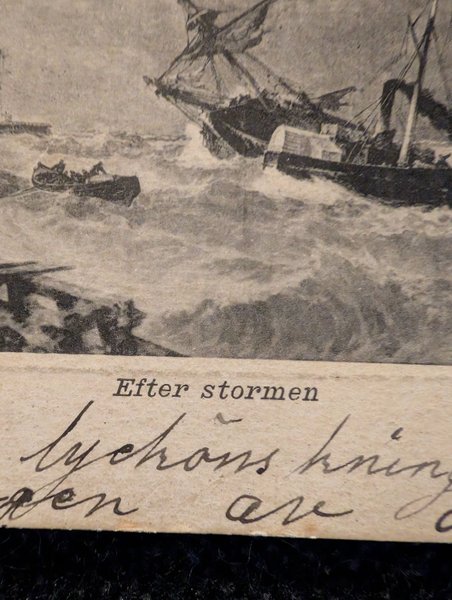 Efter stormen
lyckönskning
en av